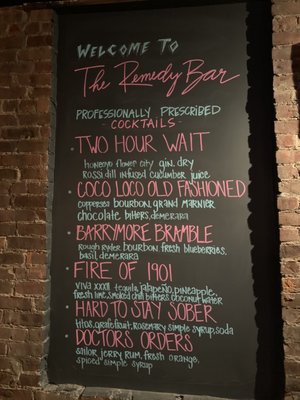 WELCOME TO
The Remedy Bar
PROFESSIONALLY PRESCRIBED
- COCKTAILS -
• TWO HOUR WAIT
honeoye flower city gin, dry
Rossi, dill infused cucumber juice
• COCO LOCO OLD FASHIONED
coppersea bourbon, grand marnier
chocolate bitters, demerara
• BARRYMORE BRAMBLE
Rough Ryder bourbon, fresh blueberries,
basil, demerara
• FIRE OF 1901
VIVA XXXII tequila, jalapeño, pineapple,
fresh lime, smoked chili bitters, coconut water
• HARD TO STAY SOBER
titos, grapefruit, rosemary simple syrup, soda
• DOCTORS ORDERS
sailor jerry rum, fresh orange,
spiced simple syrup